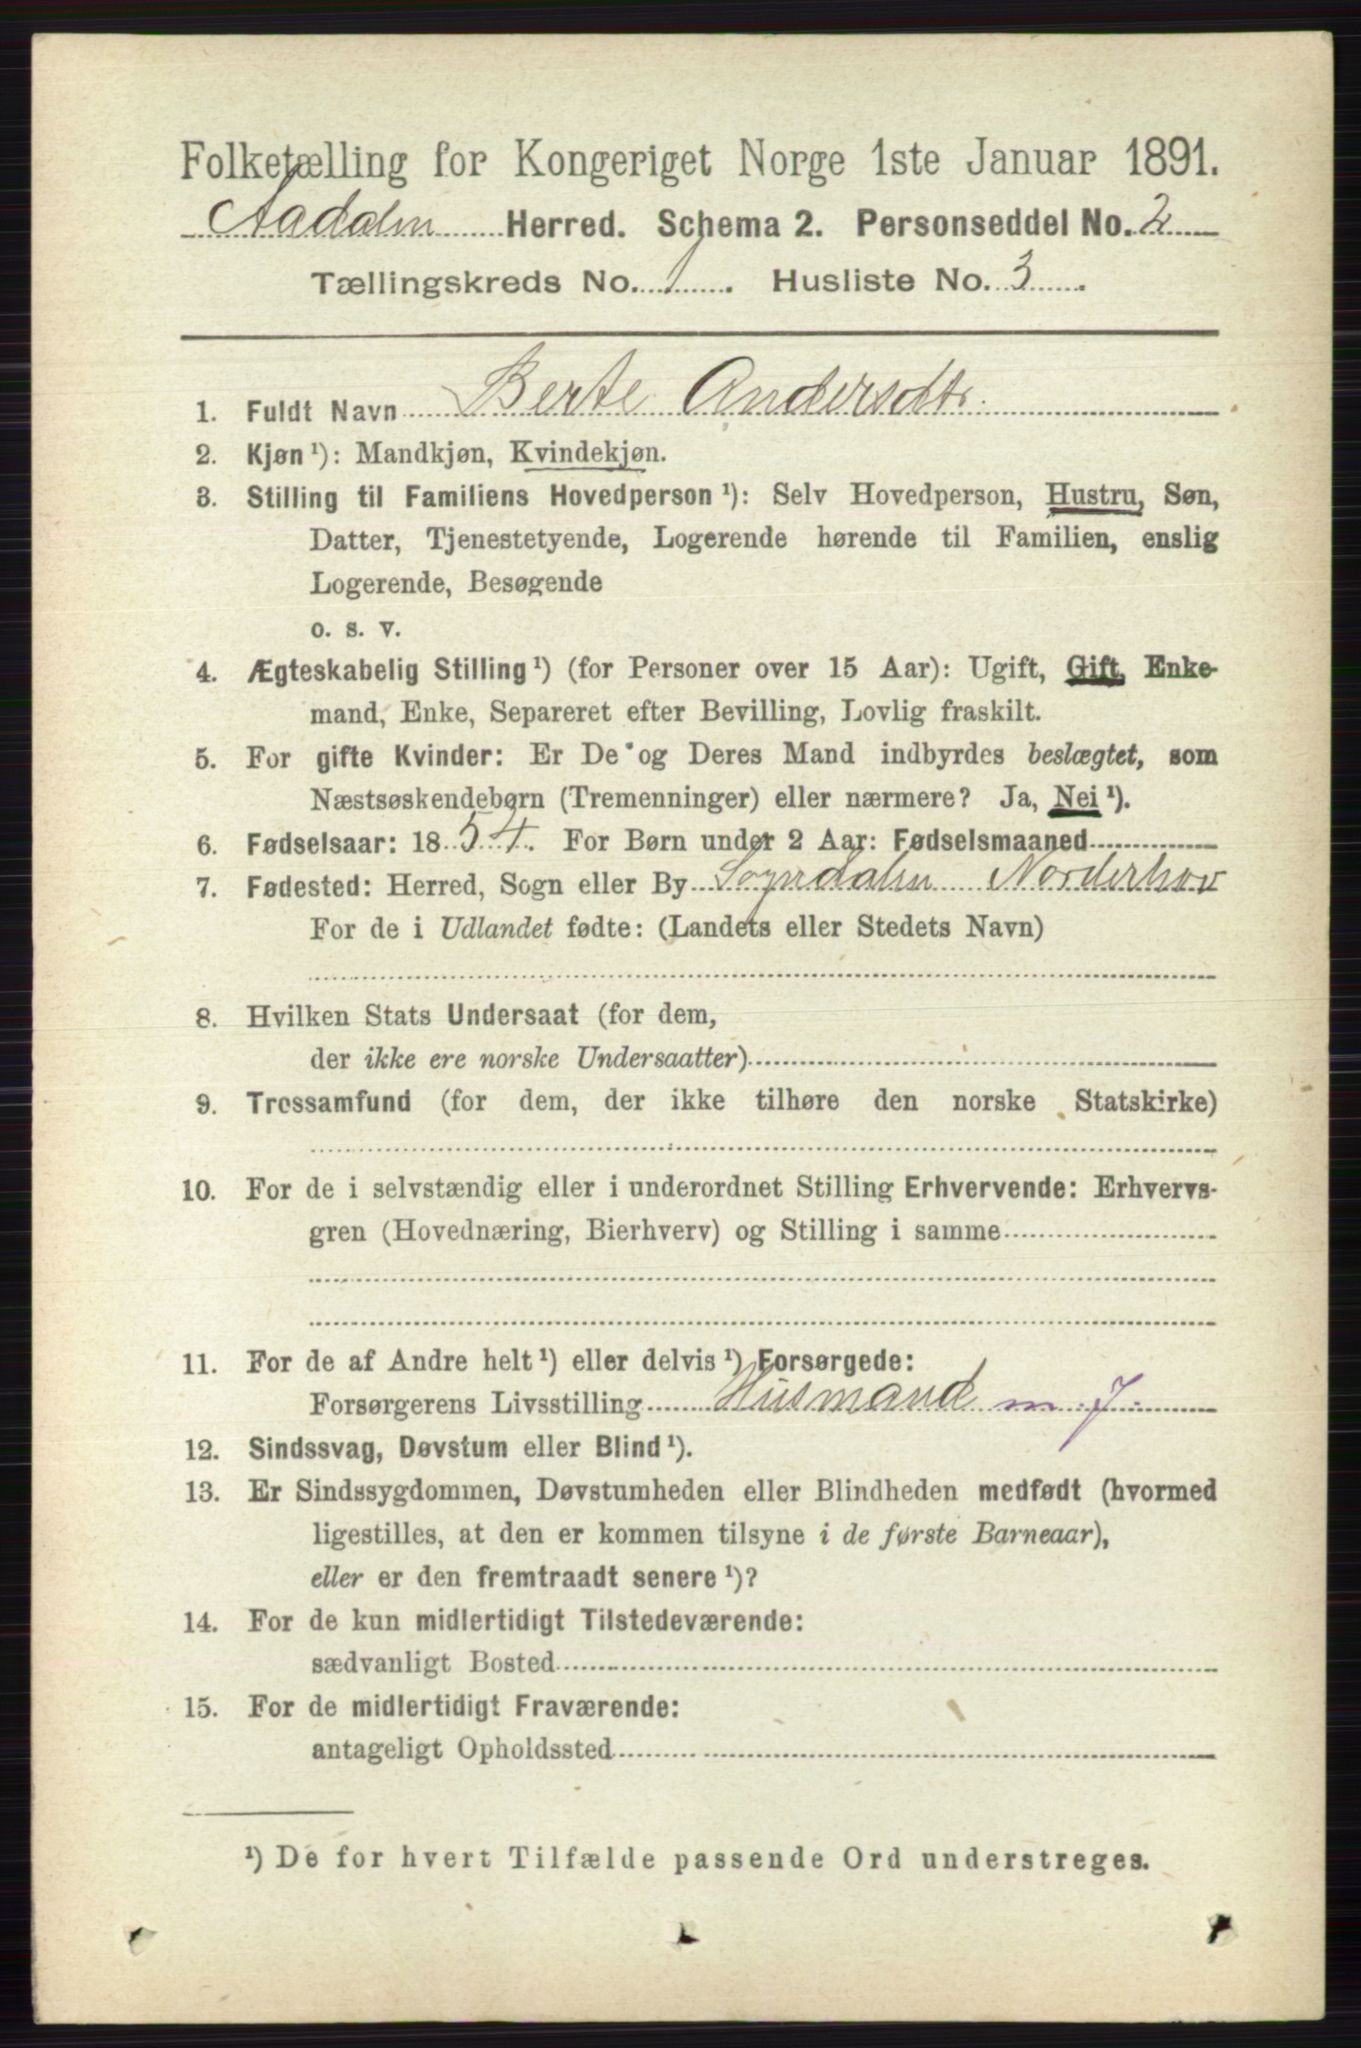 Folketælling for Kongeriget Norge 1ste Januar 1891.
Aadalen Herred. Schema 2. Personseddel No. 2
Tællingskreds No. 1. Husliste No. 3.
1. Fuldt Navn Berte Andersdtr.
2. Kjøn ¹): Mandkjøn, Kvindekjøn.
3. Stilling til Familiens Hovedperson ¹): Selv Hovedperson, Hustru, Søn,
Datter, Tjenestetyende, Logerende hørende til Familien, enslig
Logerende, Besøgende
o. s. v.
4. Ægteskabelig Stilling ¹) (for Personer over 15 Aar): Ugift, Gift, Enke-
mand, Enke, Separeret efter Bevilling, Lovlig fraskilt.
5. For gifte Kvinder: Er De og Deres Mand indbyrdes beslægtet, som
Næstsøskendebørn (Tremenninger) eller nærmere? Ja, Nei ¹).
6. Fødselsaar: 1854. For Børn under 2 Aar: Fødselsmaaned
7. Fødested: Herred, Sogn eller By Sogndalen Norderhov
For de i Udlandet fødte: (Landets eller Stedets Navn)
8. Hvilken Stats Undersaat (for dem,
der ikke ere norske Undersaatter)
9. Trossamfund (for dem, der ikke tilhøre den norske Statskirke)
10. For de i selvstændig eller i underordnet Stilling Erhvervende: Erhvervs-
gren (Hovednæring, Bierhverv) og Stilling i samme
11. For de af Andre helt ¹) eller delvis ¹) Forsørgede:
Forsørgerens Livsstilling Husmand m. J.
12. Sindssvag, Døvstum eller Blind ¹).
13. Er Sindssygdommen, Døvstumheden eller Blindheden medfødt (hvormed
ligestilles, at den er kommen tilsyne i de første Barneaar),
eller er den fremtraadt senere ¹)?
14. For de kun midlertidigt Tilstedeværende:
sædvanligt Bosted
15. For de midlertidigt Fraværende:
antageligt Opholdssted
¹) De for hvert Tilfælde passende Ord understreges.